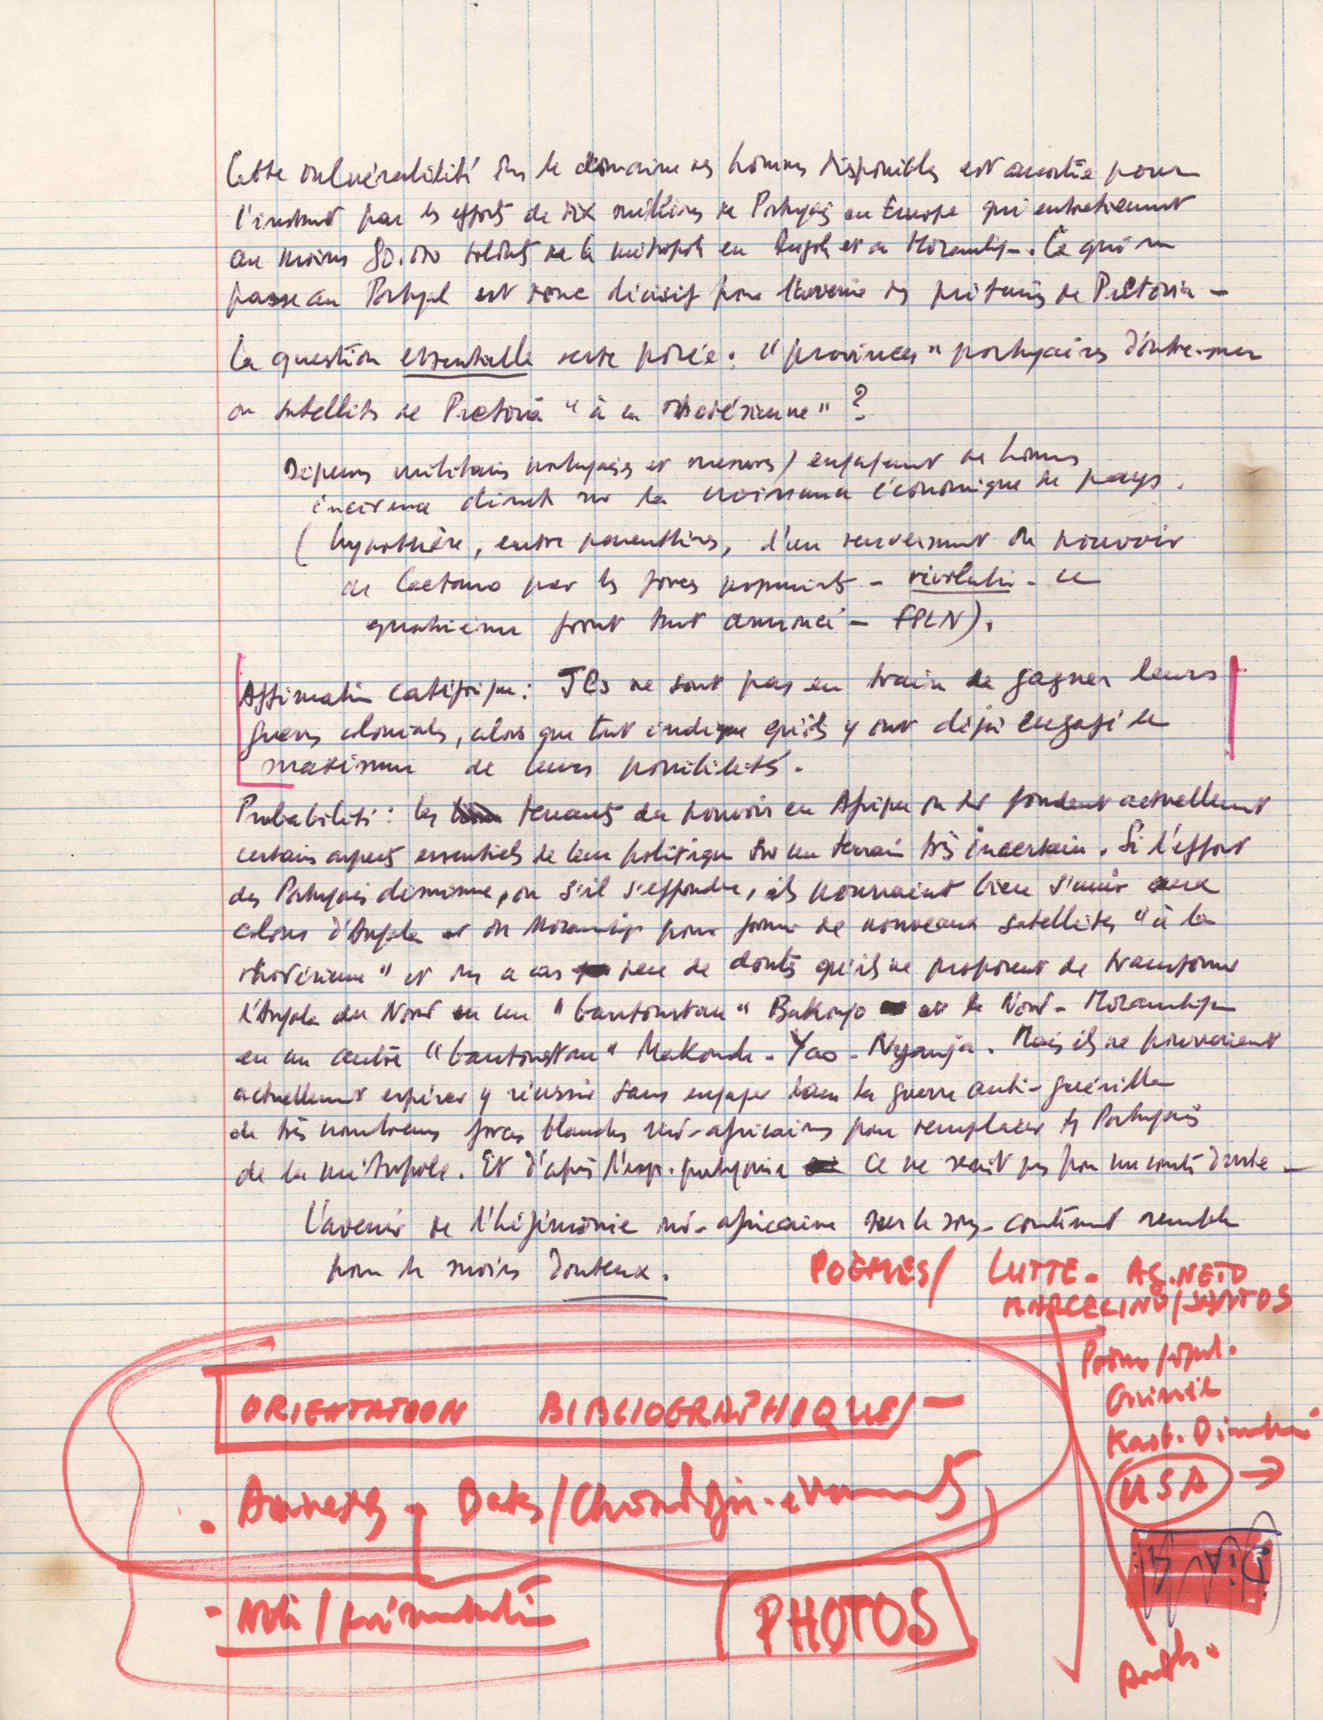 Cette vulnérabilité ds le domaine des hommes disponibles est amortie pour
l'instant par les efforts de dix millions de Portugais en Europe qui entretiennent
au moins 80.000 soldats de la métropole en Angola et au Mozambique. Ce qui se
passe au Portugal est donc décisif pour l'avenir des prétoriens de Pretoria –
La question essentielle reste posée : "provinces" portugaises d'outre-mer
ou satellites de Pretoria "à la rhodésienne" ?
Dépenses militaires portugaises et mesures / engageant des hommes
incidence directe sur la croissance économique du pays.
( hypothèse, entre parenthèses, d'un renversement du pouvoir
de Caetano par les forces populaires – révolution – ce
quatrième front tant annoncé – FPLN).
Affirmation catégorique : Ils ne sont pas en train de gagner leurs
guerres coloniales, alors que tout indique qu'ils y ont déjà engagé le
maximum de leurs possibilités.
Probabilité : les tenants du pouvoir en Afrique du Sd fondent actuellement
certains aspects essentiels de leur politique sur un terrain très incertain. Si l'effort
des Portugais diminue, ou s'il s'effondre, ils pourraient bien s'unir aux
colons d'Angola et du Mozambique pour former de nouveaux satellites "à la
rhodésienne" et ds ce cas peu de doute qu'ils ne proposent de transformer
l'Angola du Nord en un "bantoustan" Bakongo et le Nord-Mozambique
en un autre "bantoustan" Makonde-Yao-Nyanja. Mais ils ne pourraient
actuellement espérer y réussir sans engager dans la guerre anti-guérilla
de très nombreuses forces blanches sud-africaines pour remplacer les Portugais
de la métropole. Et d'après l'exp. portugaise ce ne serait pas pour un courte durée –
L'avenir de l'hégémonie sud-africaine sur le sous-continent semble
pour le moins douteux.
POÈMES / LUTTE – AG. NETO
MARCELINO / SANTOS
Poèmes / popul.
Guinée
ORIENTATION BIBLIOGRAPHIQUES –
USA →
. Annexes , Dates / Chronologie – événements
– Note / présentation
PHOTOS